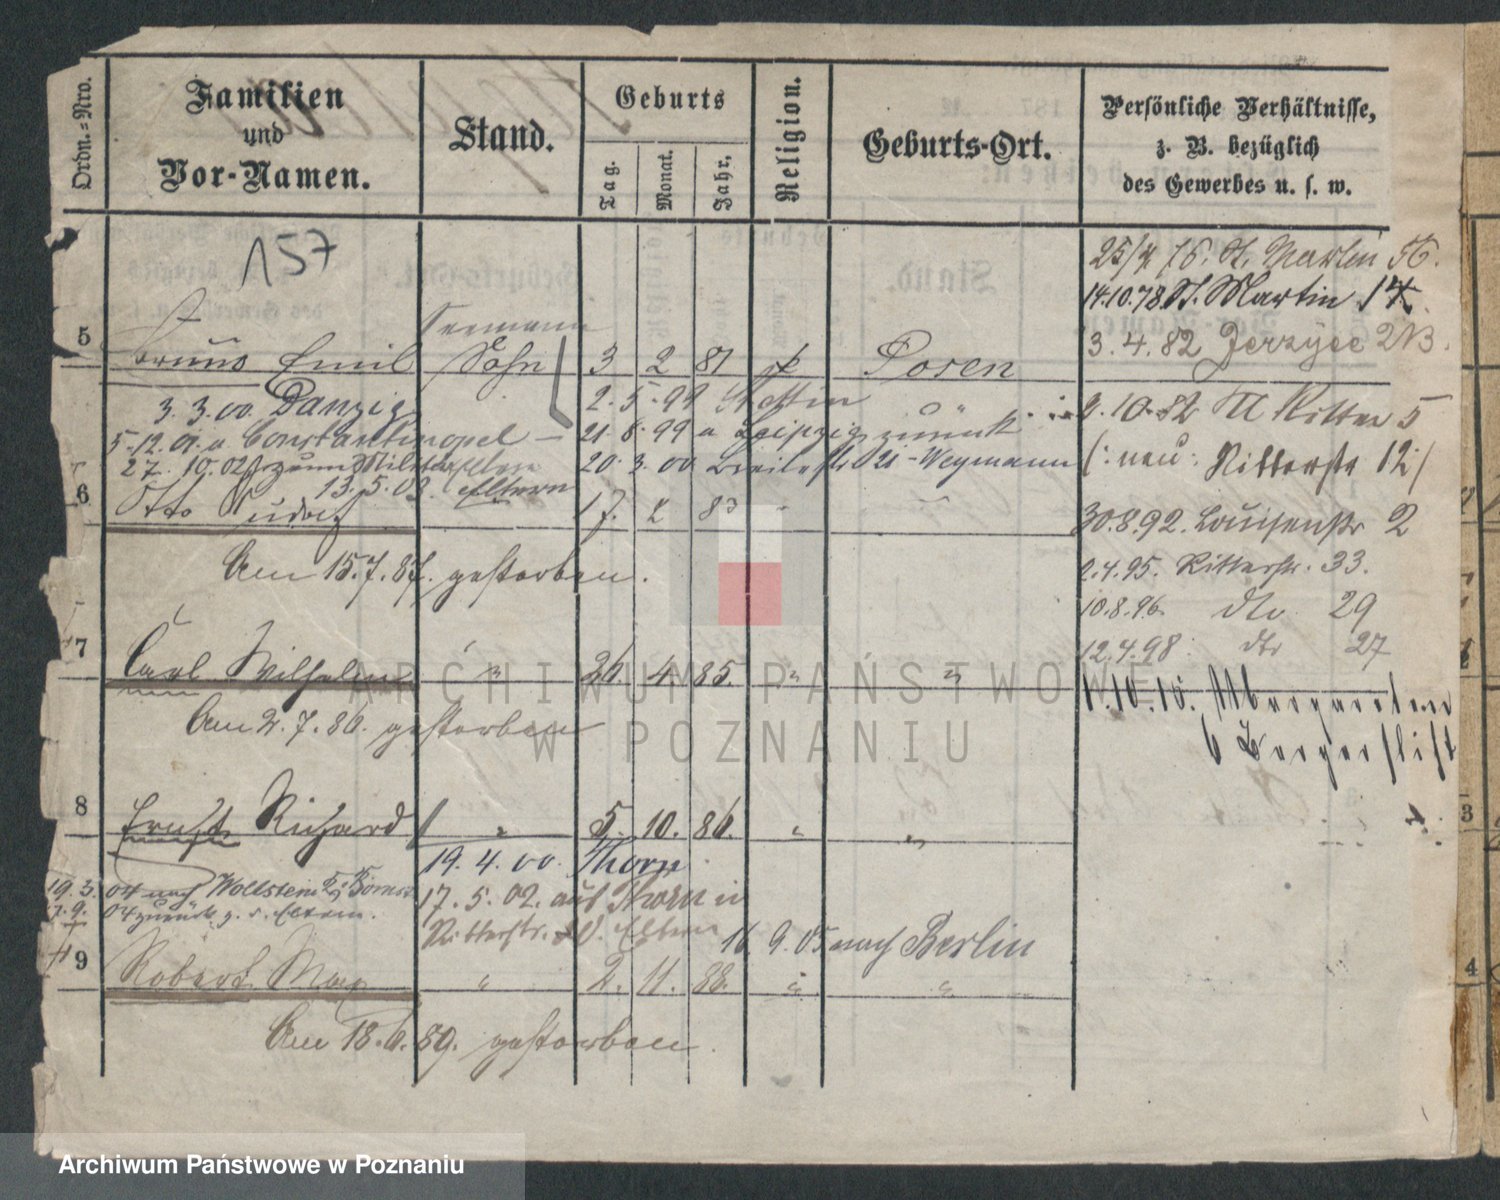 Ordn.=Nro.
Familien
und
Vor-Namen.
Stand.
Geburts
Tag.
Monat.
Jahr.
Religion.
Geburts-Ort.
Persönliche Verhältnisse,
z. B. bezüglich
des Gewerbes u. s. w.
157
25/4 76. St. Martin 56.
14.10.78 St. Martin 14
3.4.82 Jerzyce 213.
Seemann
5 Bruno Emil Sohn 3 2 81 Posen
3.3.00. Danzig 2.5.99 Stettin
9.10.82 Ritter 5
5.12.01. a Constantinopel – 21.8.99 a Leipzig zurück
27.10.02 zum Militär 20.3.00 21 - Weymann
(: neu: Ritterstr 12:)
13.5.03. Eltern
6 Otto Rudolf 17. 2 83
30.8.92. Louisenstr 2
Am 15.7.87. gestorben.
2.4.95. Ritterstr. 33.
10.8.96. dto 29
12.4.98. dto 27
7 Carl Wilhelm " 26. 4. 85. " "
1.10.10.
6 Bergerstift
Am 2.7.86. gestorben
8 Ernst Richard " 5. 10. 86. " "
19.4.00. Thorn.
19.3. 04 nach Wollstein Bomst
17.5.02. aus Thorn in
17.9. 04 zurück z. d. Eltern.
Ritterstr. Eltern
16.9.05 nach Berlin
9 Robert Max " 2. 11. 88. " "
Am 18.6.89. gestorben.
3
4
ARCHIWUM PAŃSTWOWE
W POZNANIU
Archiwum Państwowe w Poznaniu